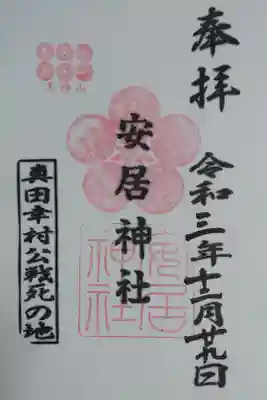 奉拝
令和三年十二月廿九日
安居神社
安居神社
真田幸村公戦死の地